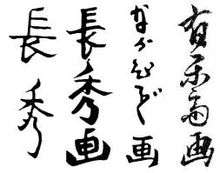 有楽斎画
ながひで画
長秀画
長秀